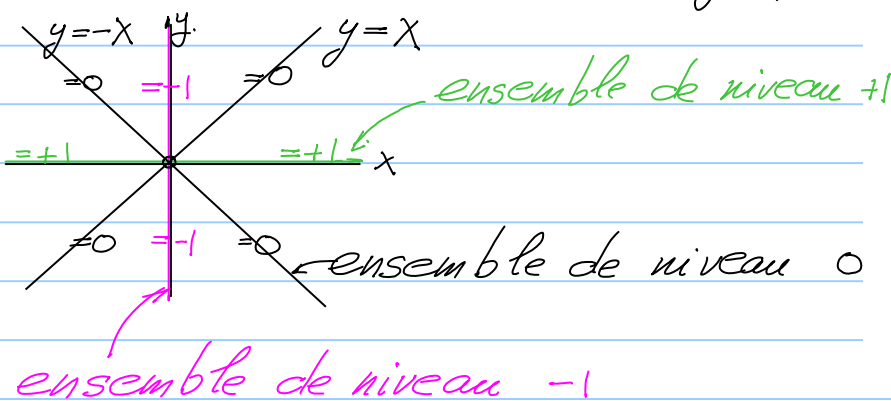 y=-x y. y=x
=0 =-1 =0 ensemble de niveau +1
=+1 =+1 x
=0 =-1 =0 ensemble de niveau 0
ensemble de niveau -1